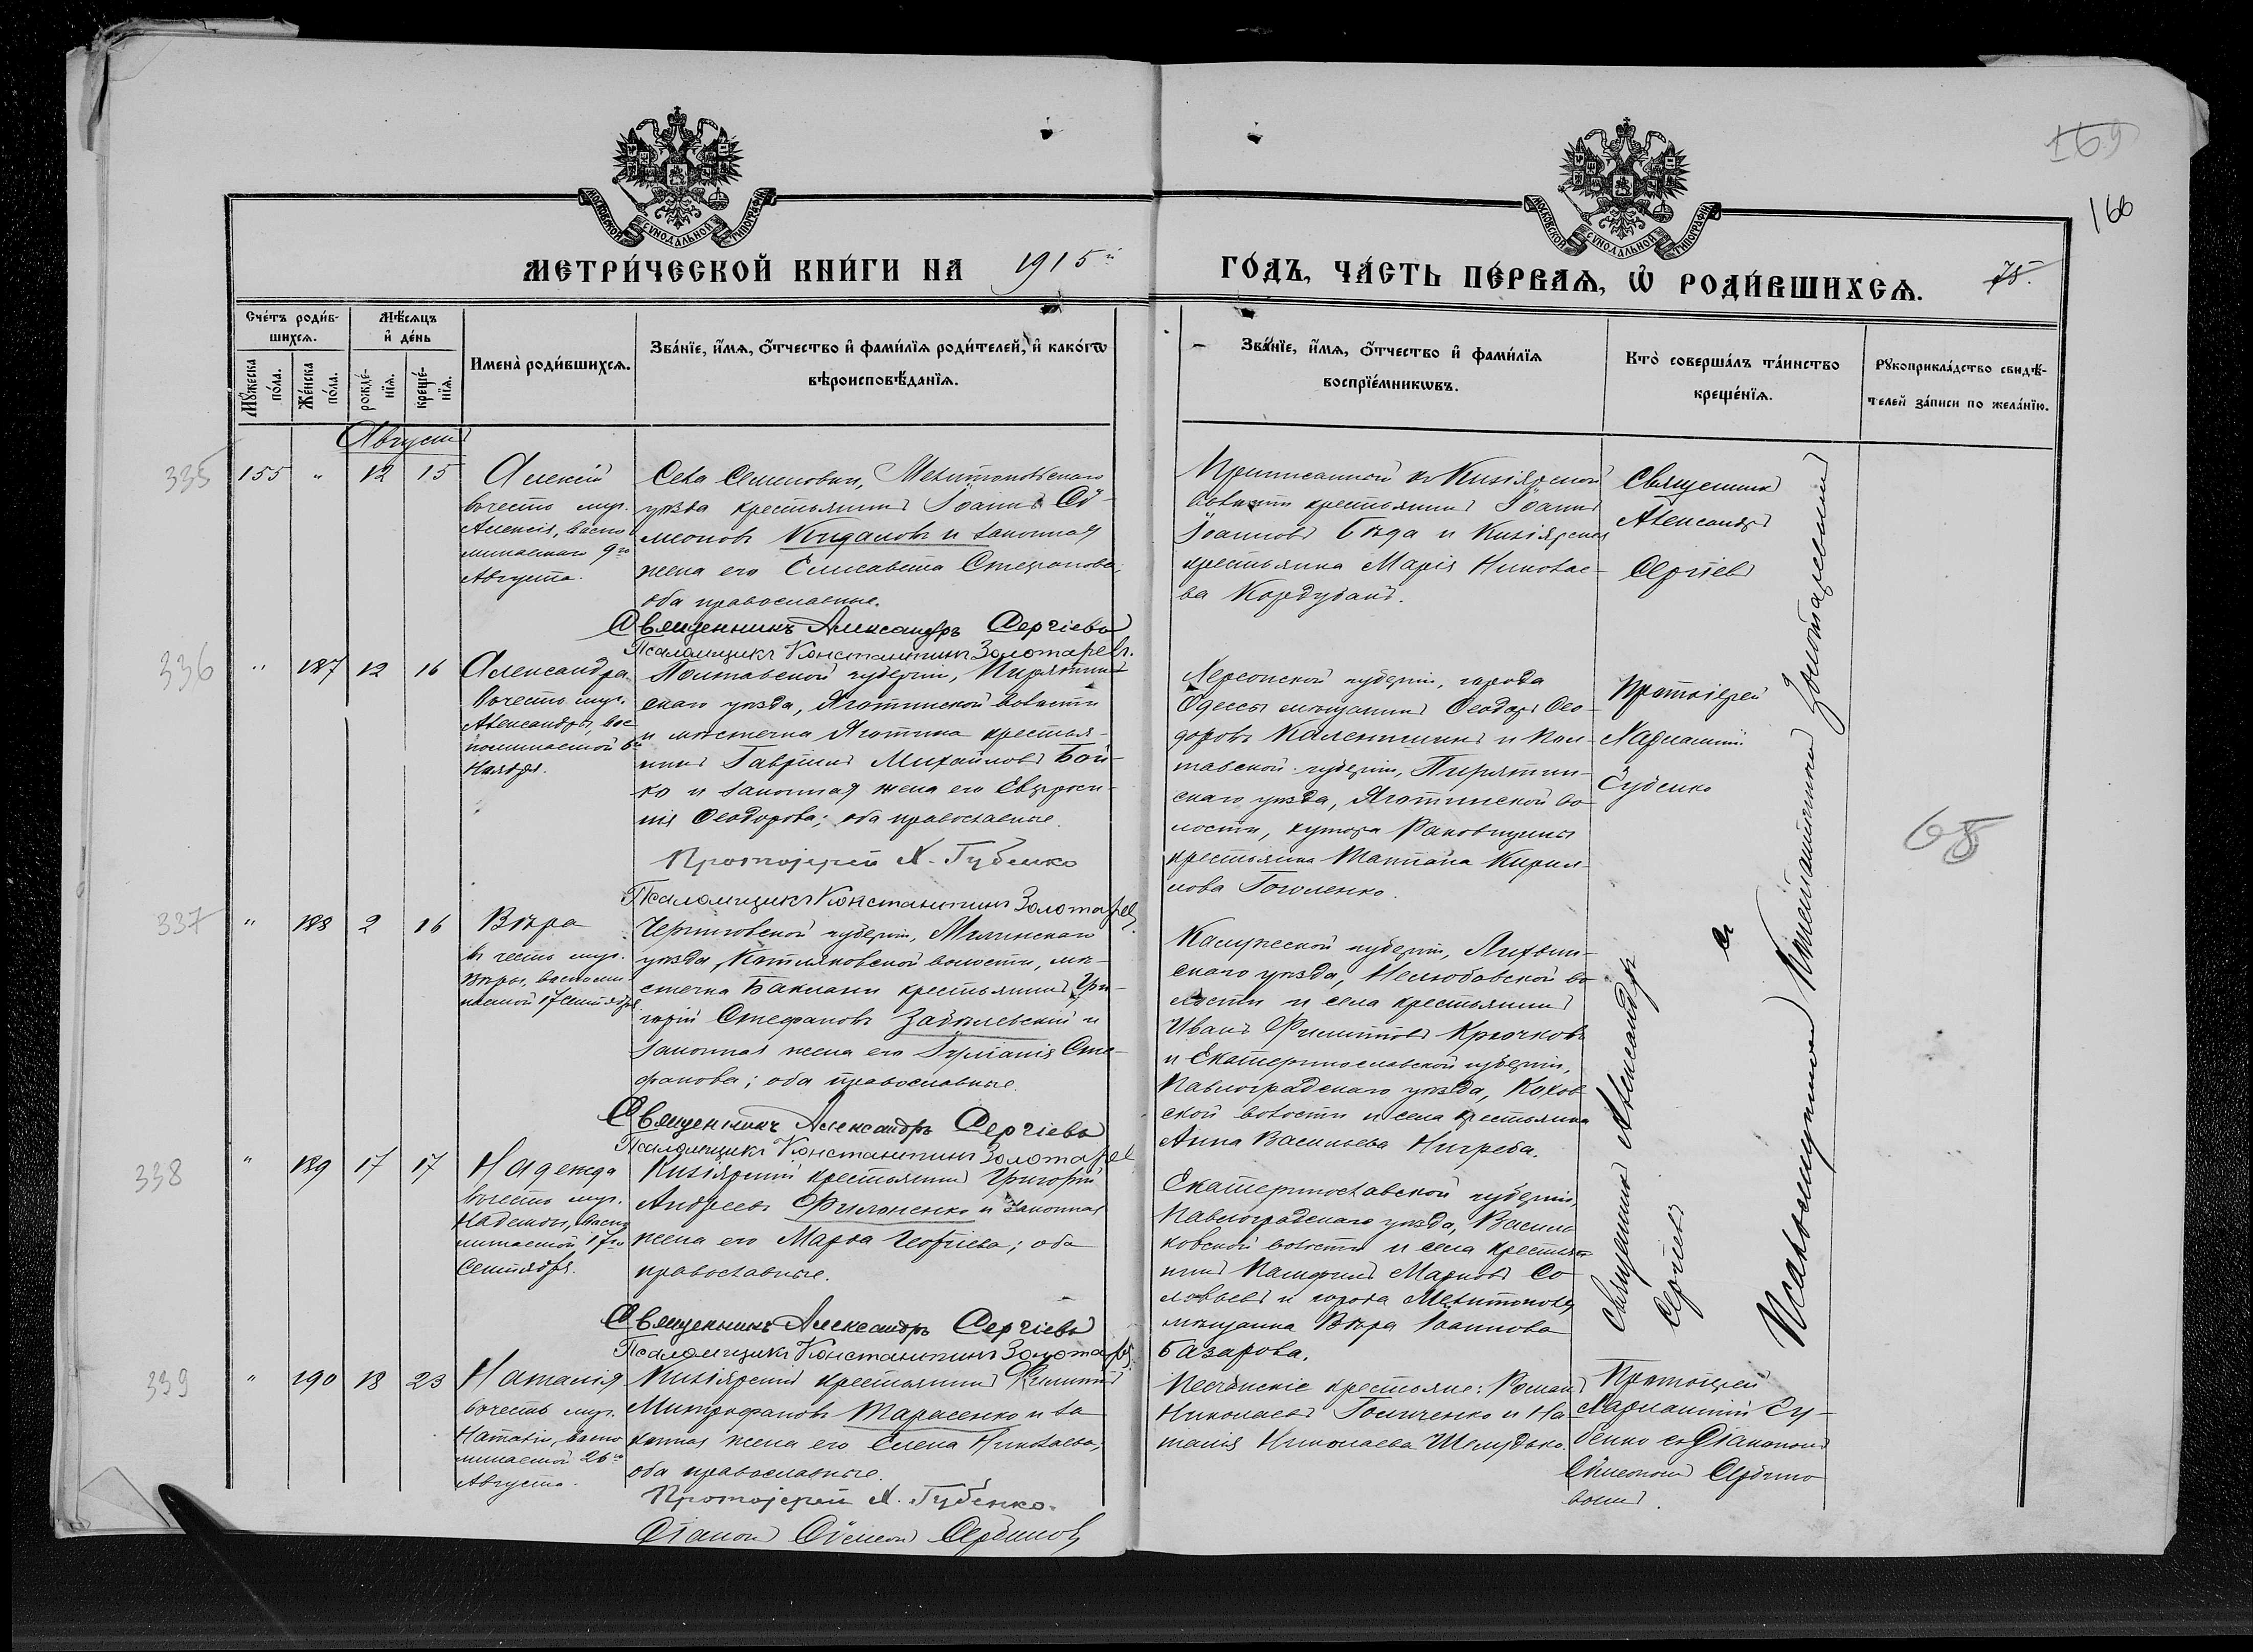 169
166
МОСКОВСКОЙ СѴНОДАЛЬНОЙ ТИПОГРАФІИ
МОСКОВСКОЙ СѴНОДАЛЬНОЙ ТИПОГРАФІИ
МЕТРИ́ЧЕСКОЙ КНИ́ГИ НА 1915й
ГО́ДЪ, ЧА́СТЬ ПЕ́РВАѦ, Ѡ҆ РОДИ́ВШИХСѦ. 75.
Сче́тъ роди́в-
шихсѧ.
Мꙋ́жеска по́ла.
Же́нска по́ла.
Мѣ́сѧцъ
и҆ де́нь
рожде́-
нїѧ.
креще́-
нїѧ.
Имена̀ роди́вшихсѧ.
Зва́нїе, и҆́мѧ, ѻ҆́тчество и҆ фами́лїѧ роди́телей, и҆ како́гѡ
вѣроисповѣ́данїѧ.
Зва́нїе, и҆́мѧ, ѻ҆́тчество и҆ фами́лїѧ
воспрїе́мникѡвъ.
Кто̀ соверша́лъ та́инство
креще́нїѧ.
Рꙋкоприкла́дство свидѣ́-
телей за́писи по жела́нїю.
Августъ
335 155 " 12 15
Алексій
вочесть муч.
Алексія, воспо
минаемаго 9го
Августа.
Села Семеновки, Мелитопольскаго
уѣзда крестьянинъ Іоаннъ Сѵ-
меоновъ Кидаловъ и законная
жена его Елисавета Стефанова,
оба православные.
Священникъ Александръ Сергіевъ
Псаломщикъ Константинъ Золотаревъ.
Приписанный къ Кизіярской
волости крестьянинъ Іоаннъ
Іоанновъ Бѣда и Кизіярская
крестьянка Марія Николае-
ва Кордубанъ.
Священникъ
Александръ
Сергіевъ
336 " 187 12 16
Александра
вочесть муч.
Александры, вос
поминаемой 6го
Ноября.
Полтавской губерніи, Пирятин-
скаго уѣзда, Яготинской волости
и мѣстечка Яготина крестья-
нинъ Гавріилъ Михайловъ Бой-
ко и законная жена его Евфроси-
нія Ѳеодорова; оба православные.
Протоіерей Х. Губенко
Псаломщикъ Константинъ Золотарев.
Херсонской губерніи, города
Одессы мѣщанинъ Ѳеодоръ Ѳео-
доровъ Калениникъ и Пол-
тавской губерніи, Пирятин-
скаго уѣзда, Яготинской во-
лости, хутора Раковщины
крестьянка Татіана Кирил-
лова Гоголенко.
Протоіерей
Харлампій
Губенко
68
337 " 188 2 16
Вѣра
въ честь муч.
Вѣры, воспоми
наемой 17 Сентября
Черниговской губерніи, Мглинскаго
уѣзда, Котляковской волости, мѣ-
стечка Баклани крестьянинъ Гри-
горій Стефановъ Забѣлевскій и
законная жена его Іуліанія Сте-
фанова; оба православные.
Священникъ Александръ Сергіевъ
Псаломщикъ Константинъ Золотарев
Калужской губерніи, Лихвин-
скаго уѣзда, Нелюбовской во-
лости и села крестьянинъ
Иванъ Филипповъ Крючковъ
и Екатеринославской губерніи,
Павлоградскаго уѣзда, Кохов-
ской волости и села крестьянка
Анна Васильева Нигреба.
Священникъ Александръ
Сергіевъ
съ
Псаломщикомъ Константиномъ Золотаревымъ
338 " 189 17 17
Надежда
вочесть муч.
Надежды, воспо
минаемой 17го
Сентября.
Кизіярскій крестьянинъ Григорій
Андреевъ Филоненко и законная
жена его Марѳа Георгіева; оба
православные.
Священникъ Александръ Сергіевъ
Псаломщикъ Константинъ Золотарев.
Екатеринославской губерніи,
Павлоградскаго уѣзда, Василь
ковской волости и села крестья-
нинъ Памфилъ Марковъ Со
ловьевъ и города Мелитополя
мѣщанка Вѣра Іоаннова
Базарова.
339 " 190 18 23
Наталія
вочесть муч.
Наталіи, воспо
минаемой 26го
Августа.
Кизіярскій крестьянинъ Филиппъ
Митрофановъ Тарасенко и за
конная жена его Елена Николаева,
оба православные.
Протоіерей Х. Губенко.
Діаконъ Сѵмеонъ Сербиновъ
Песчанскіе крестьяне: Романъ
Николаевъ Голиченко и На
талія Николаева Шелудько.
Протоіерей
Харлампій Гу-
бенко съ Діакономъ
Сѵмеономъ Сербино
вымъ.